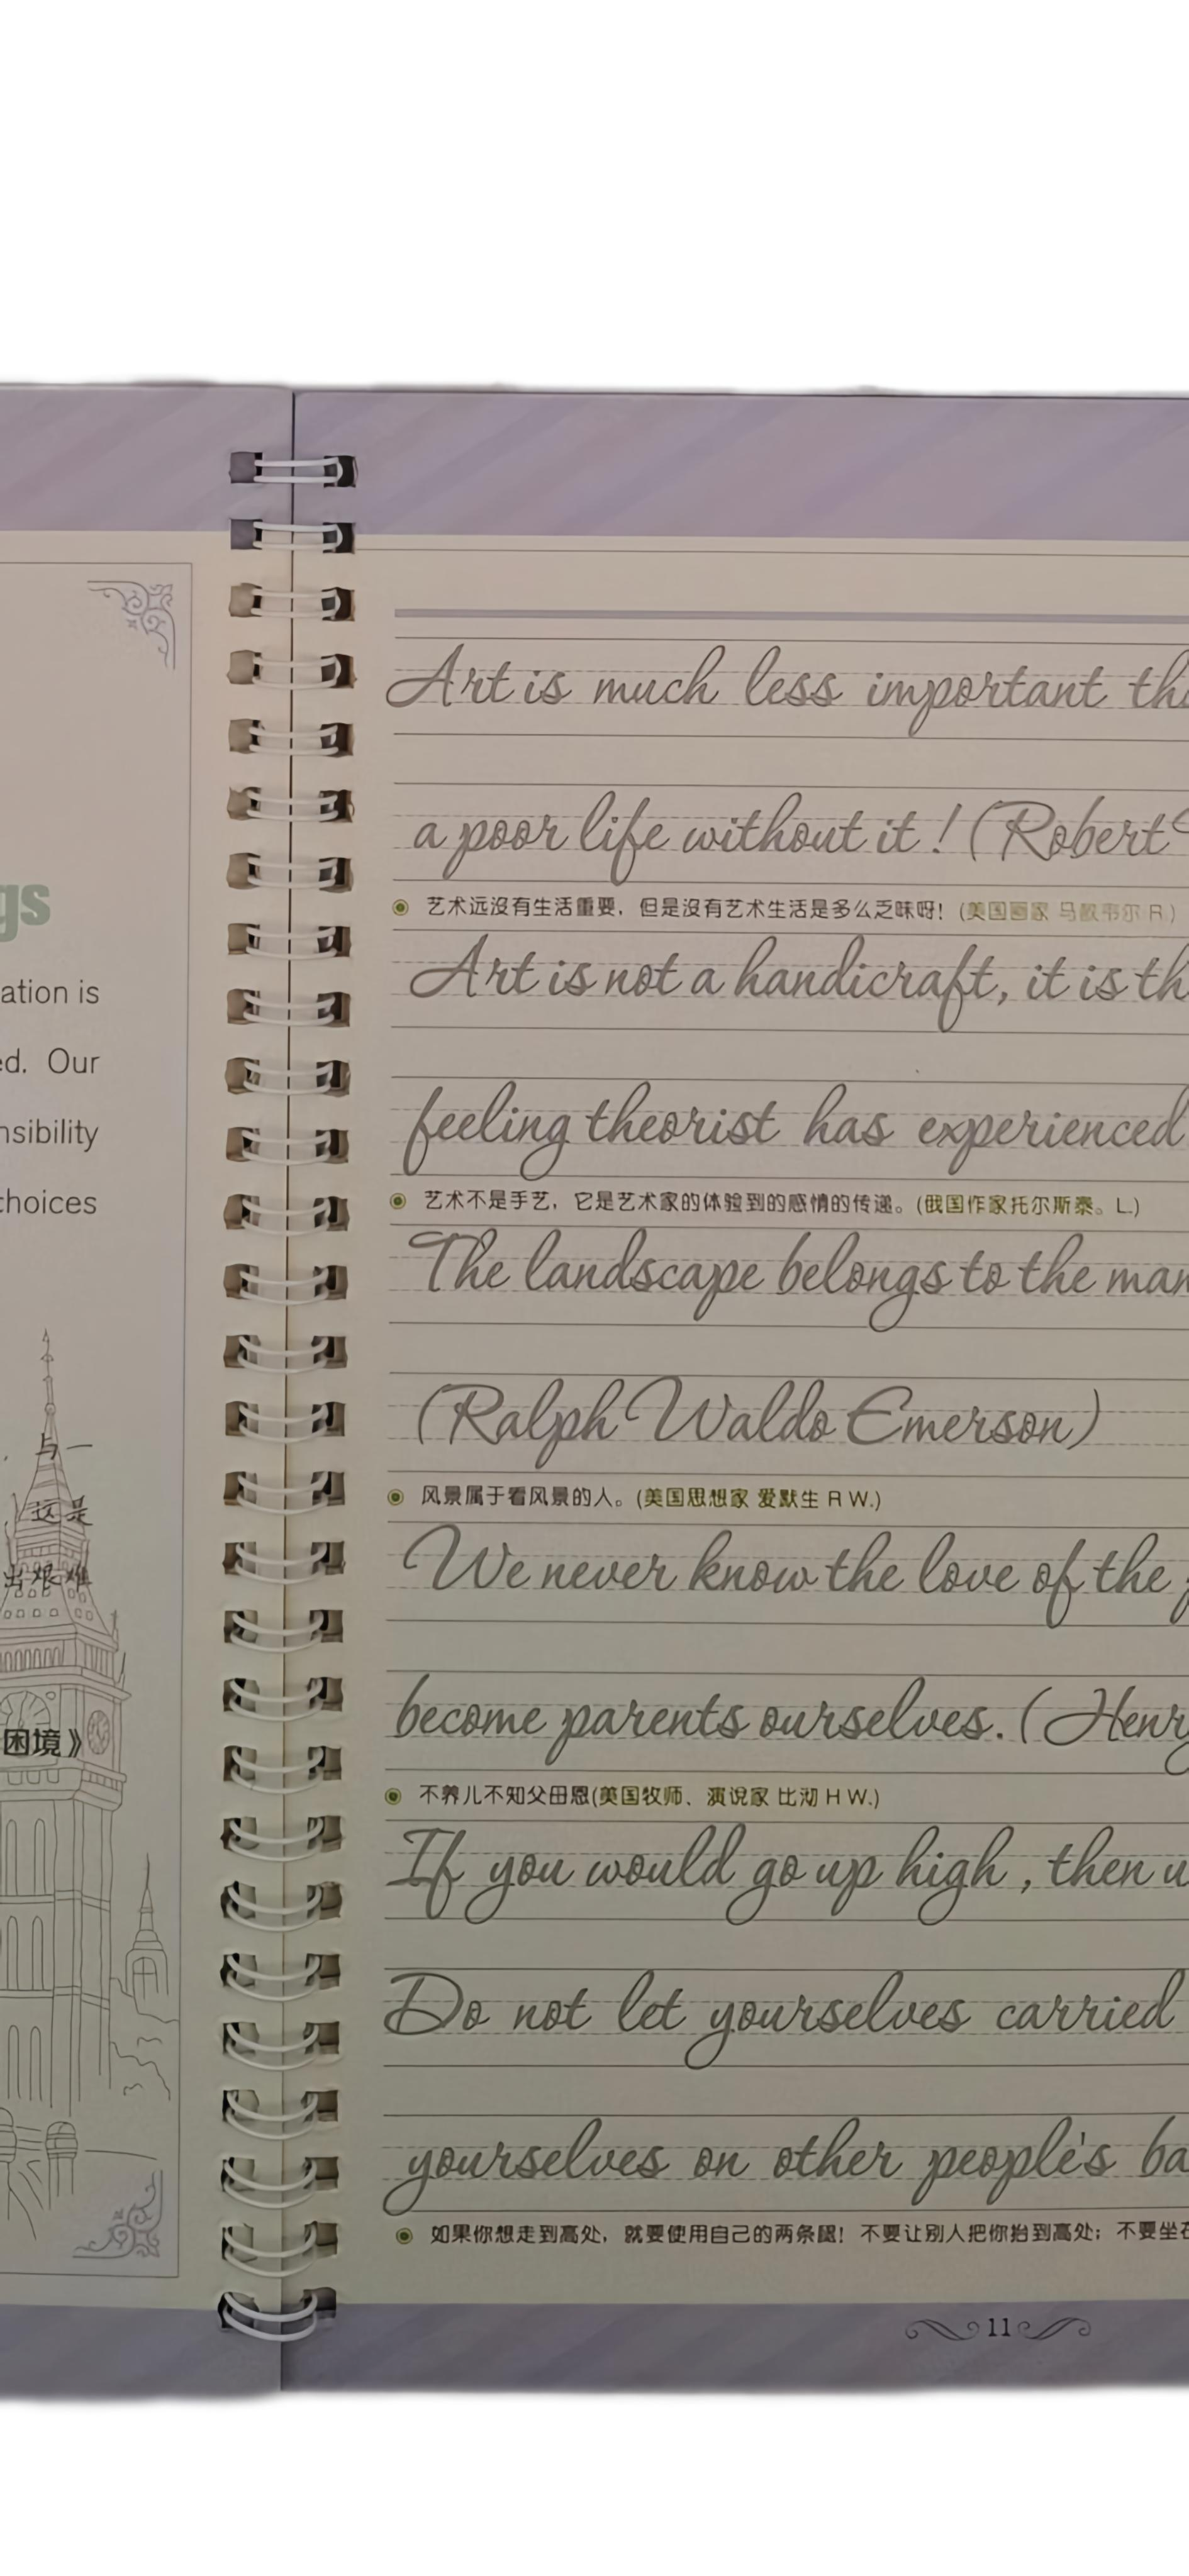 gs
ation is
ed. Our
nsibility
choices
与一
这是
出艰难
困境》
Art is much less important
a poor life without it! (Robert
艺术远没有生活重要，但是没有艺术生活是多么乏味呀！(美国画家 马瑟韦尔 R.)
Art is not a handicraft, it is
feeling theorist has experienced
艺术不是手艺，它是艺术家的体验到的感情的传递。(俄国作家托尔斯泰。L.)
The landscape belongs to the man
(Ralph Waldo Emerson)
风景属于看风景的人。(美国思想家 爱默生 R W.)
We never know the love of the
become parents ourselves. (Henry
不养儿不知父母恩(美国牧师、演说家 比沏 H W.)
If you would go up high, then
Do not let yourselves carried
yourselves on other people's ba
如果你想走到高处，就要使用自己的两条腿！不要让别人把你抬到高处；不要坐在
11